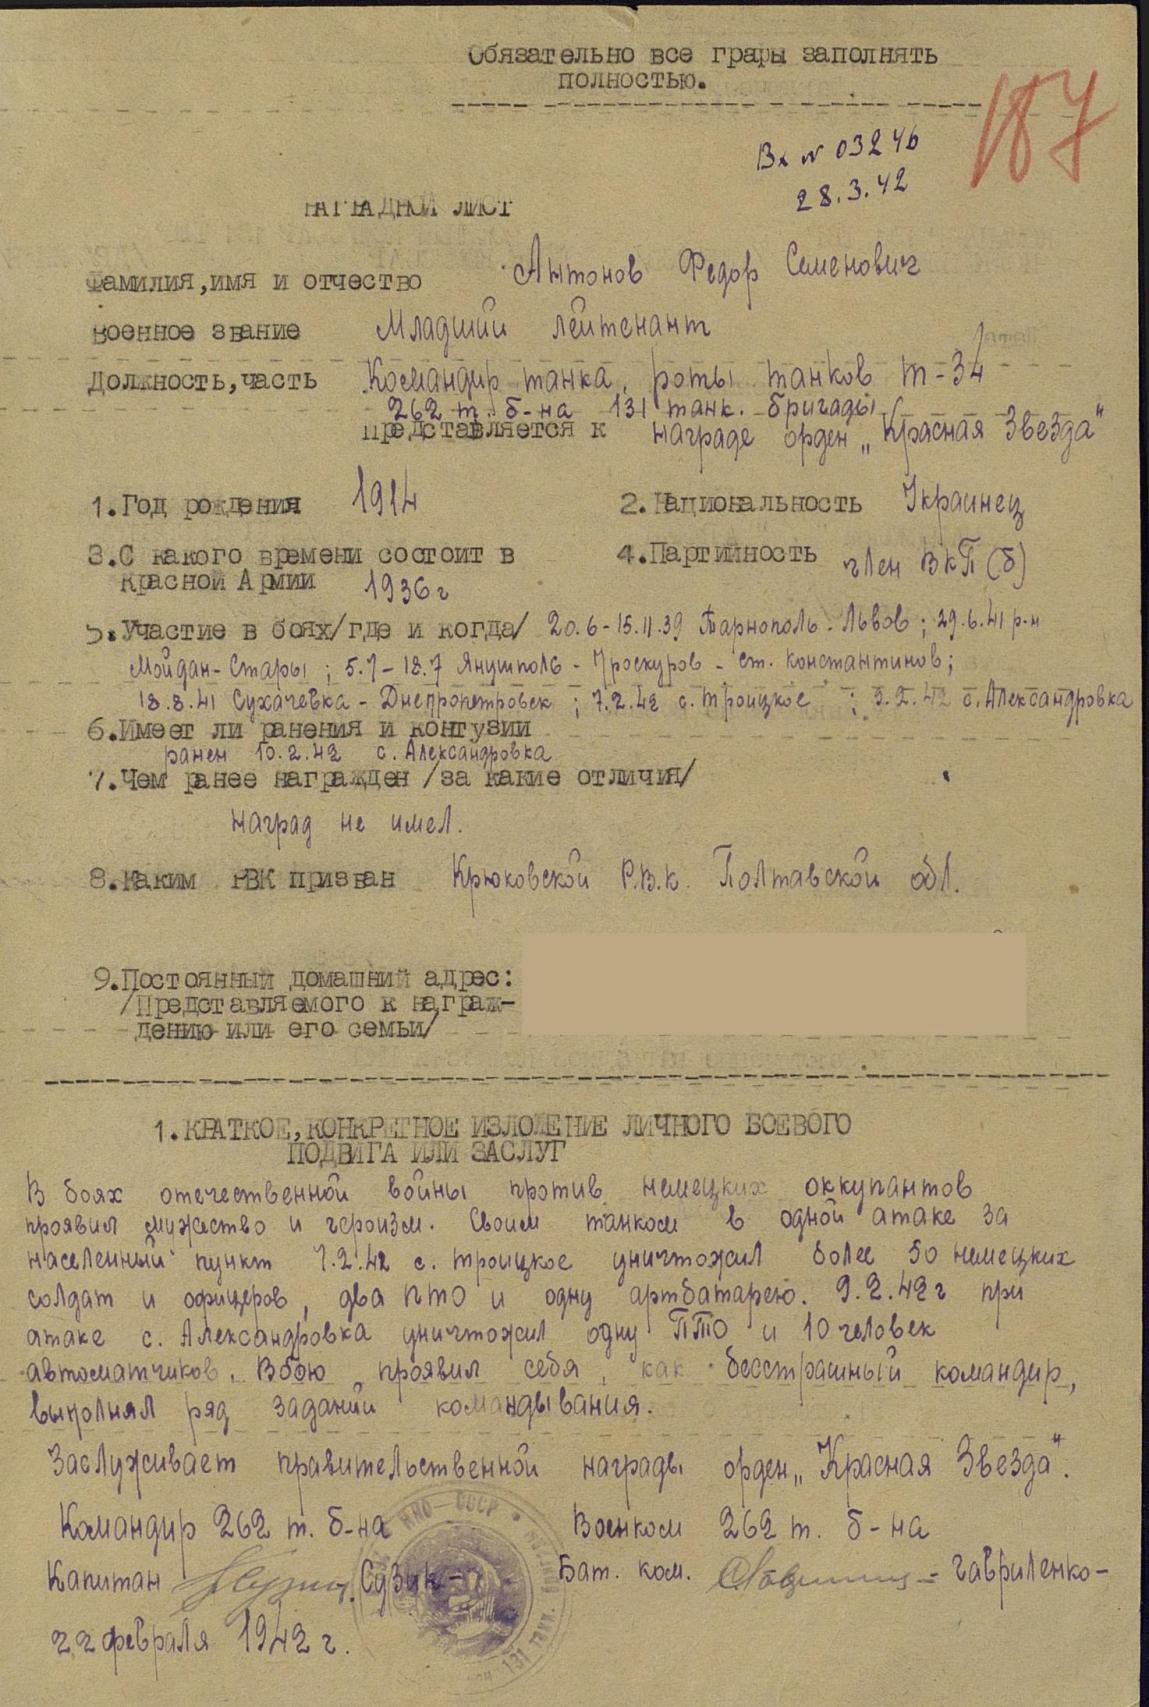 Обязательно все графы заполнять
полностью.
187
Вх № 03246
28.3.42
НАГРАДНОЙ ЛИСТ
Фамилия,имя и отчество Антонов Федор Семенович
Военное звание Младший лейтенант
Должность,часть Командир танка, роты танков Т-34
262 т. б-на 131 танк. бригады
Представляется к награде орден „Красная Звезда"
1.Год рождения 1914 2.Национальность Украинец
3.С какого времени состоит в 4.Партийность член ВКП(б)
Красной Армии 1936г
5.Участие в боях/где и когда/ 20.6-15.11.39 Тарнополь-Львов; 29.6.41 р-н
Мойдан-Стары; 5.7-18.7 Янушполь-Проскуров-ст. Константинов;
18.8.41 Сухачевка-Днепропетровск; 7.2.42 с. Троицкое; 9.2.42 с. Александровка
6.Имеет ли ранения и контузии
ранен 10.2.42 с. Александровка
7.Чем ранее награжден /за какие отличия/
наград не имел.
8.Каким РВК призван Крюковской Р.В.К. Полтавской обл.
9.Постоянный домашний адрес:
/Представляемого к награж-
дению или его семьи/
1.КРАТКОЕ,КОНКРЕТНОЕ ИЗЛОЖЕНИЕ ЛИЧНОГО БОЕВОГО
ПОДВИГА ИЛИ ЗАСЛУГ
В боях отечественной войны против немецких оккупантов
проявил мужество и героизм. Своим танком в одной атаке за
населенный пункт 7.2.42 с. Троицкое уничтожил более 50 немецких
солдат и офицеров, два ПТО и одну артбатарею. 9.2.42г при
атаке с. Александровка уничтожил одну ПТО и 10 человек
автоматчиков. В бою проявил себя, как бесстрашный командир,
выполнял ряд заданий командывания.
Заслуживает правительственной награды орден „Красная Звезда".
Командир 262 т. б-на Военком 262 т. б-на
Капитан Сузик- Бат. ком. -Гавриленко-
22 февраля 1942 г.
НКО-СССР